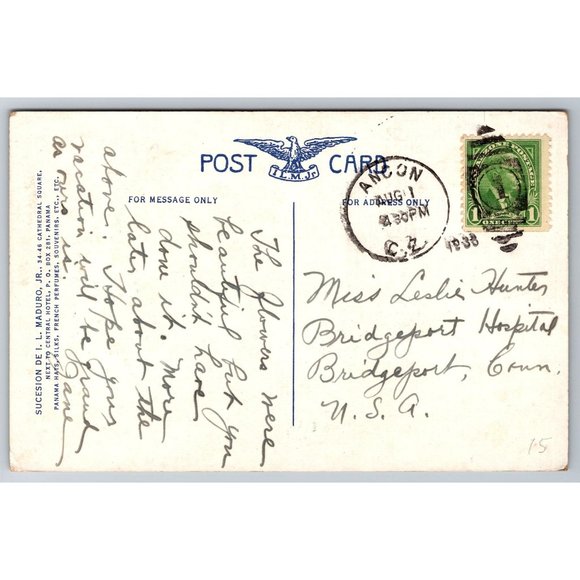 POST CARD
I.L.M.Jr.
FOR MESSAGE ONLY
FOR ADDRESS ONLY
SUCESION DE I. L. MADURO, JR., 34-46 CATHEDRAL SQUARE,
NEXT TO CENTRAL HOTEL, P. O. BOX 281, PANAMA
PANAMA HATS, SILKS, FRENCH PERFUMES, SOUVENIRS, ETC., ETC.
The flowers were
beautiful but you
shouldn't have
done it. More
later about the
above. Hope your
vacation will be grand
as this is. Jane
ANCON
AUG 1
4:30PM
C.Z.
1938
1 1
Miss Leslie Hunter
Bridgeport Hospital
Bridgeport, Conn.
U.S.A.
15